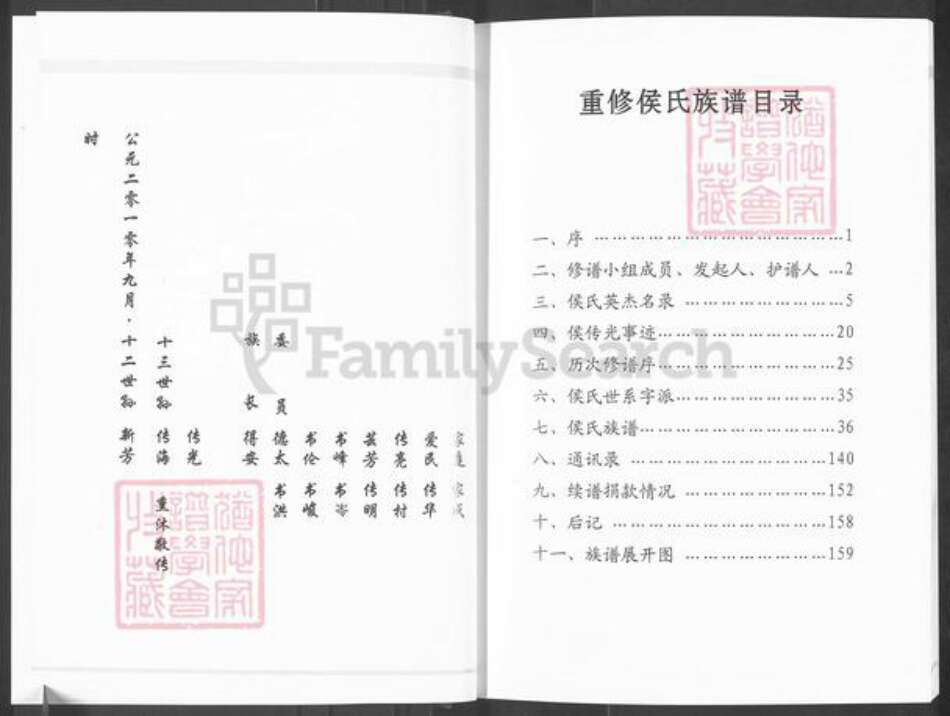 家进 家成
爱民 传华
传亮 传村
芸芳 传明
书峰 书岑
书伦 书峻
委员 德太 书洪
族长 得安
传光
十三世孙 传海 重沐敬传
公元二零一零年九月·十二世孙 新芳
时
重修侯氏族谱目录
一、序 ……………………………………1
二、修谱小组成员、发起人、护谱人 …2
三、侯氏英杰名录 ………………………5
四、侯传光事迹…………………………20
五、历次修谱序…………………………25
六、侯氏世系字派………………………35
七、侯氏族谱……………………………36
八、通讯录 ……………………………140
九、续谱捐款情况 ……………………152
十、后记 ………………………………158
十一、族谱展开图 ……………………159
FamilySearch